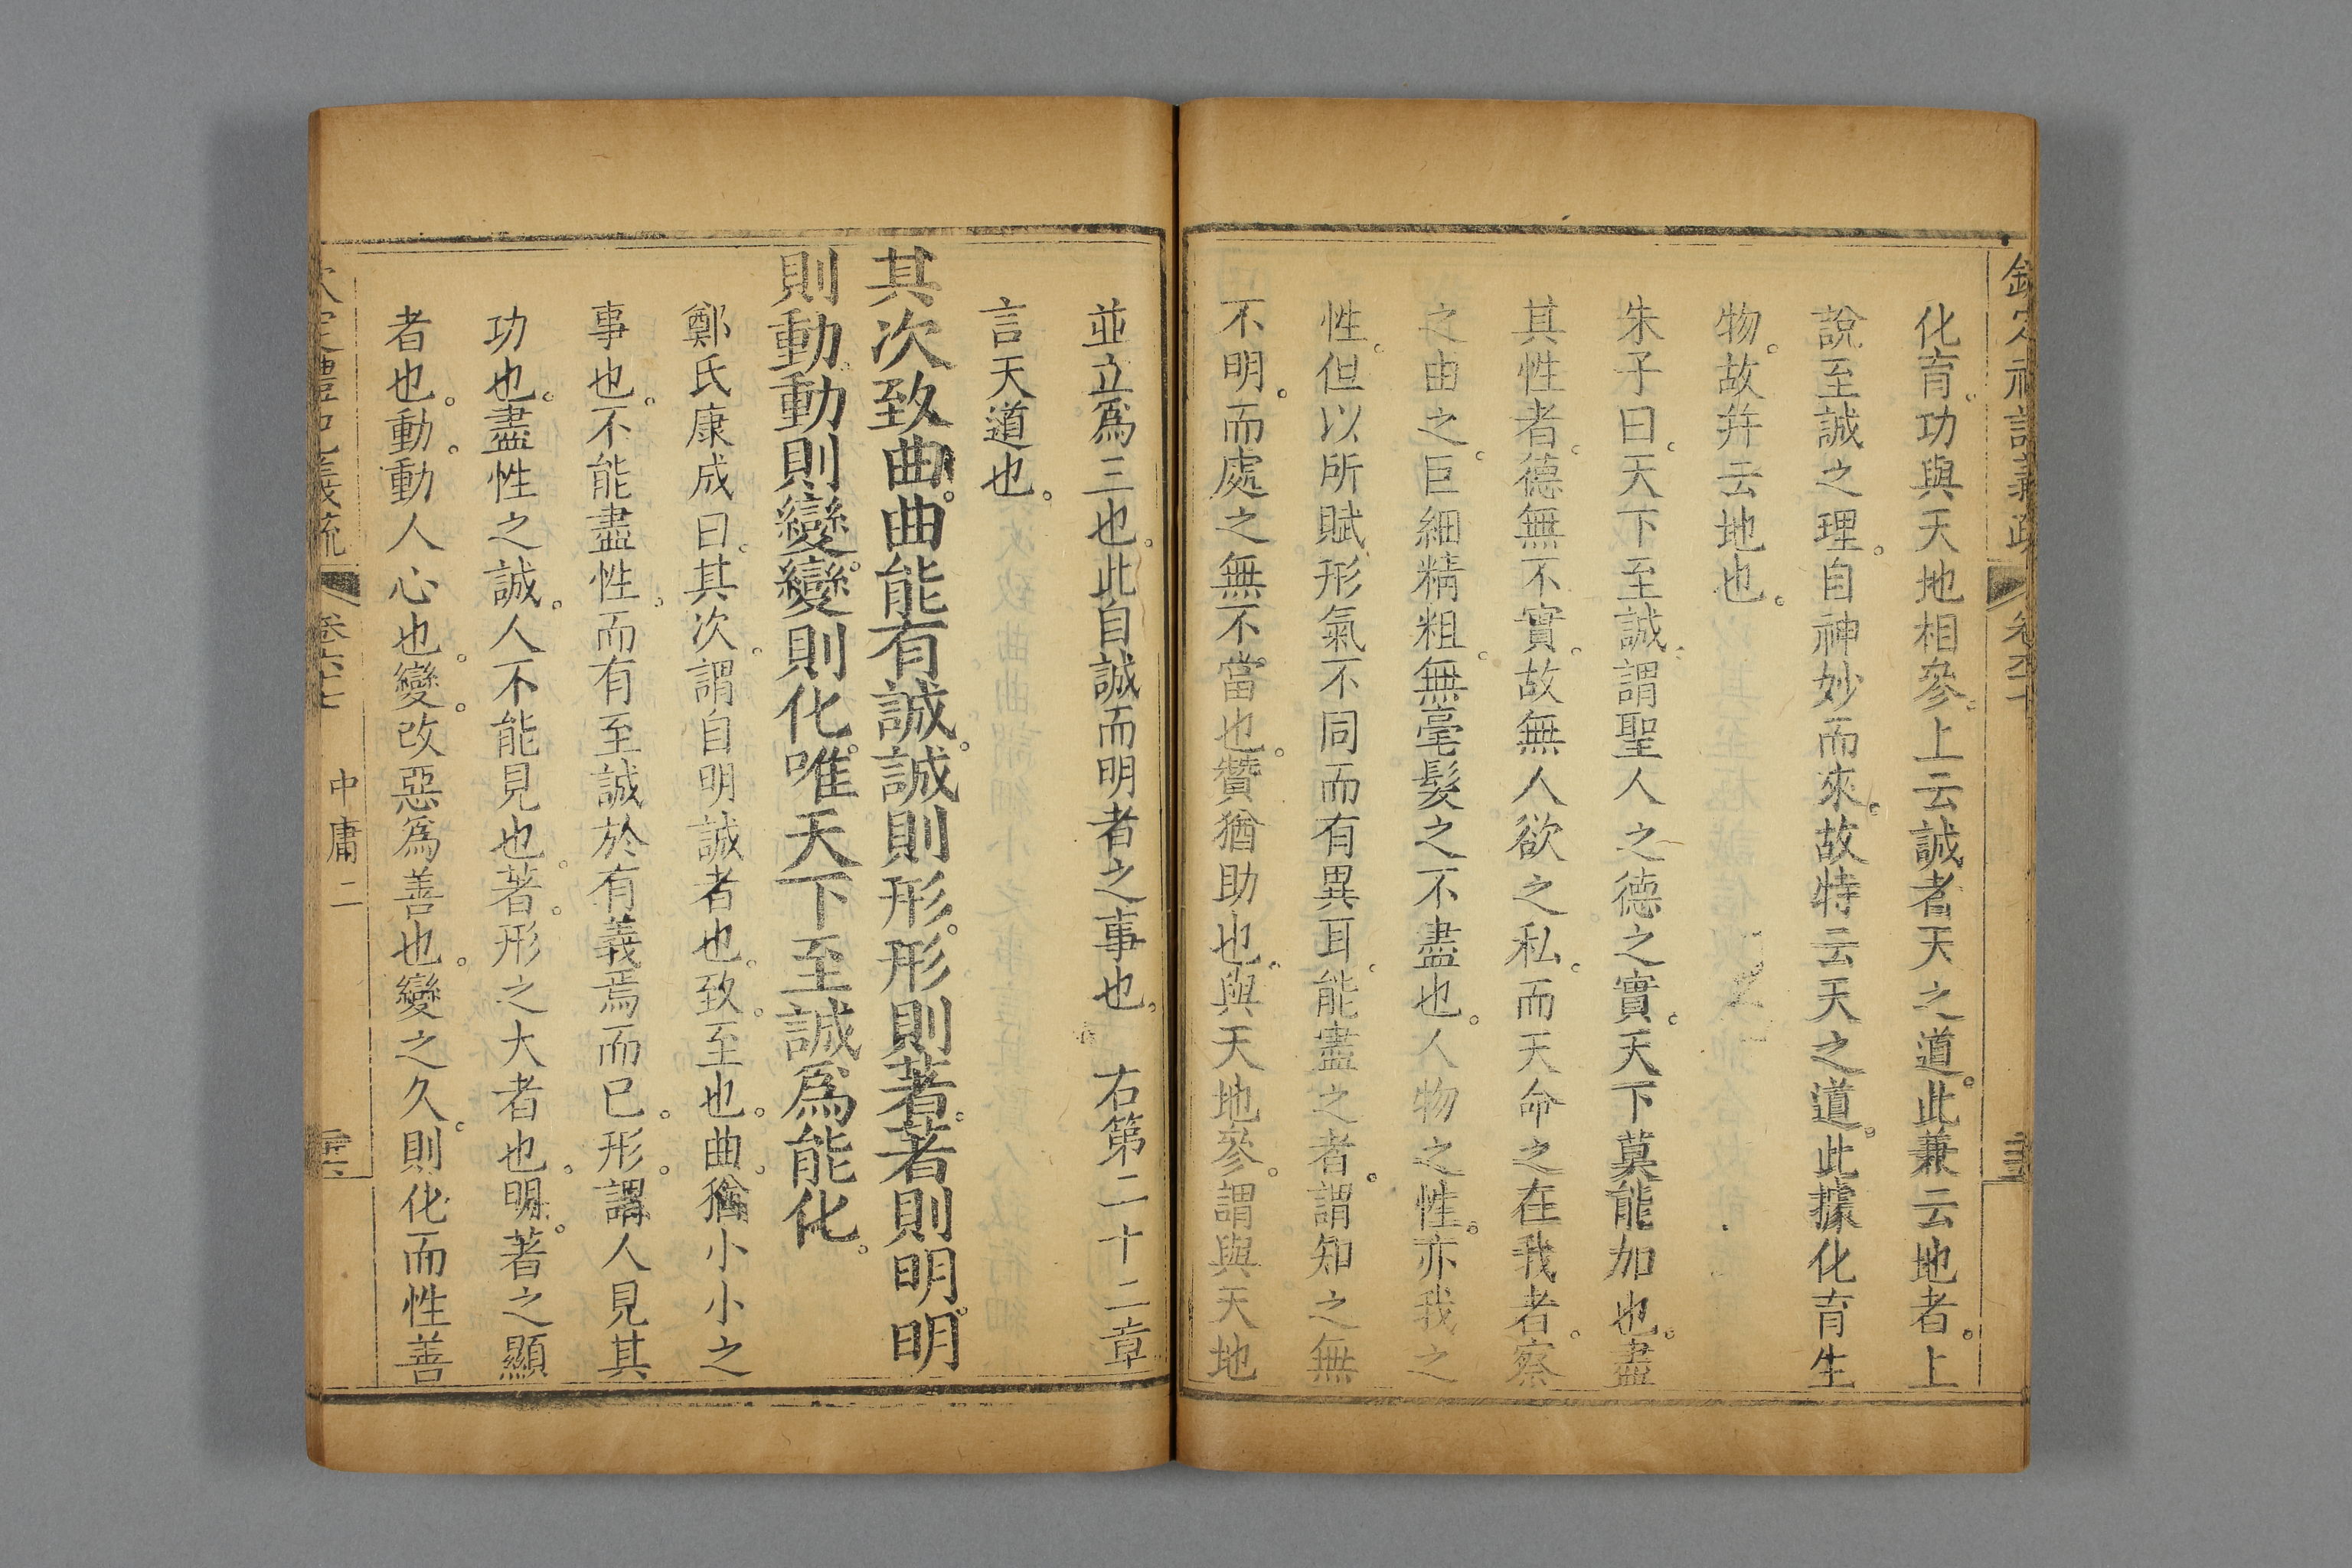 化育。功與天地相參。上云誠者天之道。此兼云地者。上
說至誠之理。自神妙而來。故特云天之道。此據化育生
物。故幷云地也。
朱子曰。天下至誠。謂聖人之德之實。天下莫能加也。盡
其性者。德無不實。故無人欲之私。而天命之在我者。察
之由之。巨細精粗。無毫髮之不盡也。人物之性。亦我之
性。但以所賦形氣不同而有異耳。能盡之者。謂知之無
不明。而處之無不當也。贊猶助也。與天地參。謂與天地
並立爲三也。此自誠而明者之事也。 右第二十二章
言天道也。
其次致曲。曲能有誠。誠則形。形則著。著則明。明
則動。動則變。變則化。唯天下至誠爲能化。
鄭氏康成曰。其次。謂自明誠者也。致。至也。曲。猶小小之
事也。不能盡性。而有至誠於有義焉而已。形。謂人見其
功也。盡性之誠。人不能見也。著。形之大者也。明。著之顯
者也。動。動人心也。變。改惡爲善也。變之久。則化而性善
卷六十七
中庸二